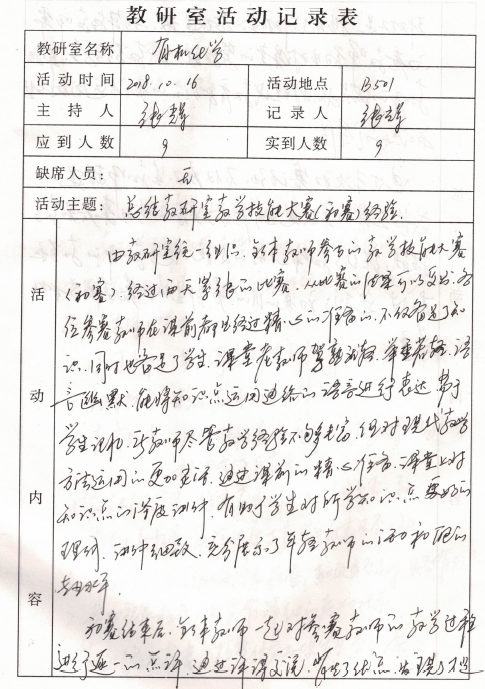 教研室活动记录表
教研室名称 有机化学
活动时间 2018.10.16 活动地点 B501
主持人 记录人
应到人数 9 实到人数 9
缺席人员: 无
活动主题: 总结教研室教学技能大赛(初赛)经验.
活动内容
由教研室统一组织、全体教师参与的教学技能大赛
(初赛)经过两天紧张的比赛.从比赛的结果可以看出,各
位参赛教师在课前都是经过精心的准备的.不仅备足了知
识.同时也备足了学生.课堂老教师驾轻就熟,举重若轻.语
言幽默.能将知识点运用通俗的语言进行表达.易于
学生记忆.新教师尽管教学经验不够丰富,但对现代教学
方法运用的更加灵活.通过课前的精心准备.课堂上对
知识点的深度讲解.有助于学生对所学知识点更好的
理解.讲解细致.充分展示了年轻教师的活力和
水平.
初赛结束后.全体教师一起对参赛教师的教学过程
进行了逐一的点评.通过评课交流,肯定了优点